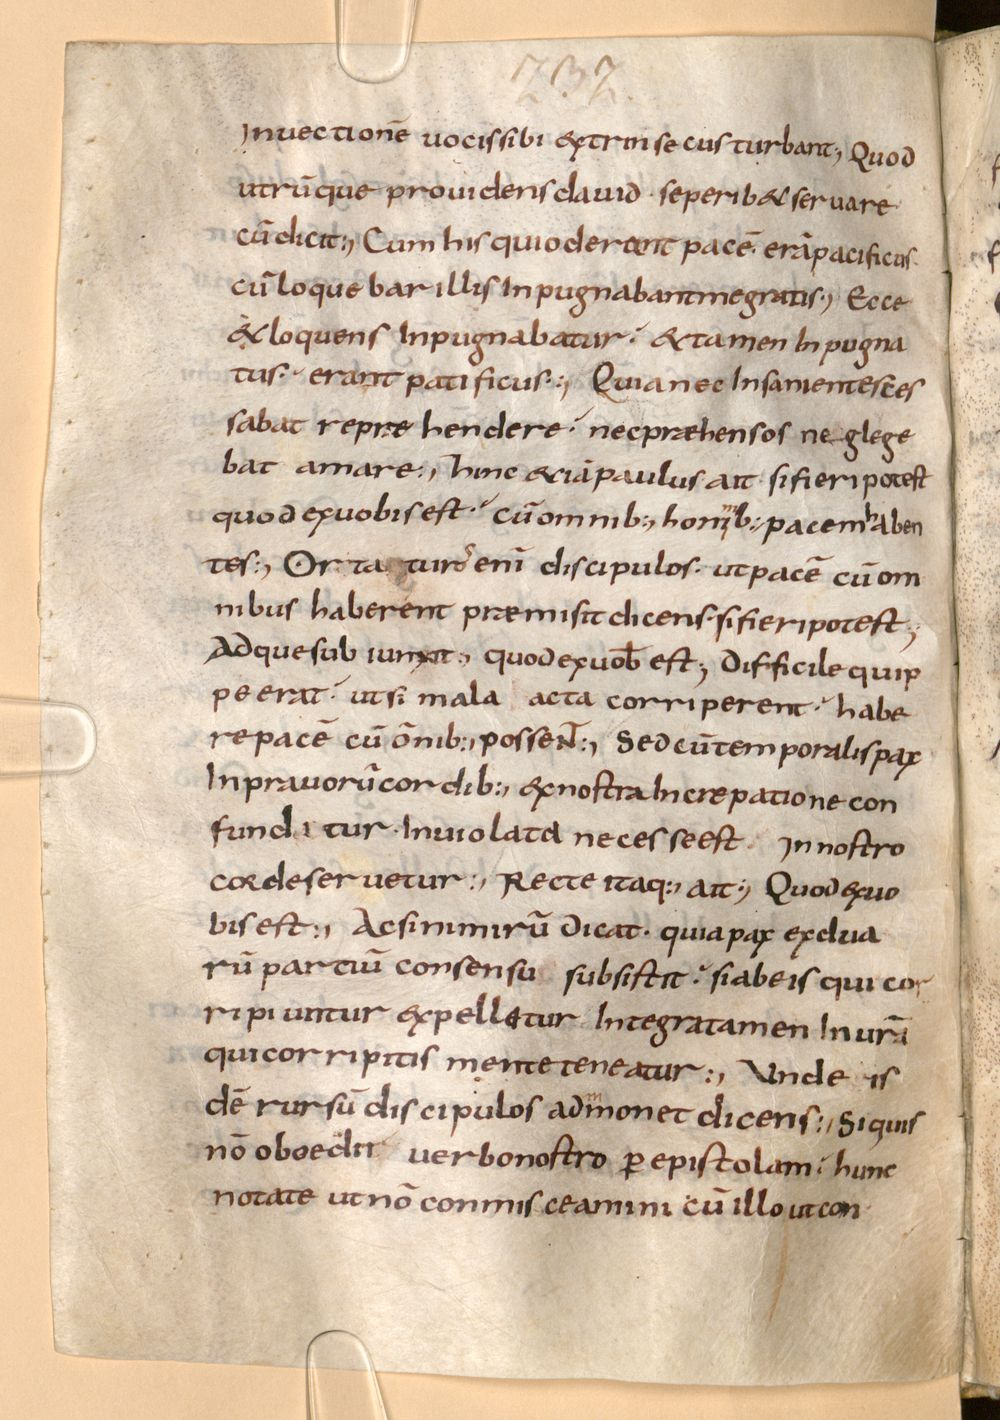 232.
Inuectionē uocis sibi extrinsecus turbant; Quod
utrūque prouidens dauid· se perib& seruare
cū dicit:, Cum his qui oderant pacē· erā pacificus·
cū loquebar illis Inpugnabant me gratis:, Ecce
& loquens Inpugnabatur· & tamen Inpugna
tus· erant patificus:, Quia nec Insanientes ces
sabat repręhendere· nec præhensos neglege
bat amare:, hinc &iā paulus ait· si fieri potest
quod ex uobis est· cū omnib:, hominib:, pacem haben
tes:, Ortaturus enī discipulos· ut pacē cū om
nibus haberent præmisit dicens· si fieri potest;
Adque subiunxit:, quod ex uob̄ est; Difficile quip
pe erat· ut si mala acta corriperent· habe
re pacē cū ōnib:, possent:, Sed cū temporalis pax
In prauorū cordib:, ex nostra Increpatione con
funditur· Inuiolata necesse est· In nostro
corde seruetur:, Recte itaq:, ait:, Quod ex uo
bis est:, Ac si nimirū dicat· quia pax ex dua
rū partiū consensu subsistit· si ab eis qui cor
ripiuntur expelletur Integra tamen In urā
qui corripitis mente teneatur:, Unde is
dē rursū discipulos admonet dicens:, Si quis
nō oboedit uerbo nostro p̱ epistolam· hunc
notate ut nō conmisceamini cū illo ut con